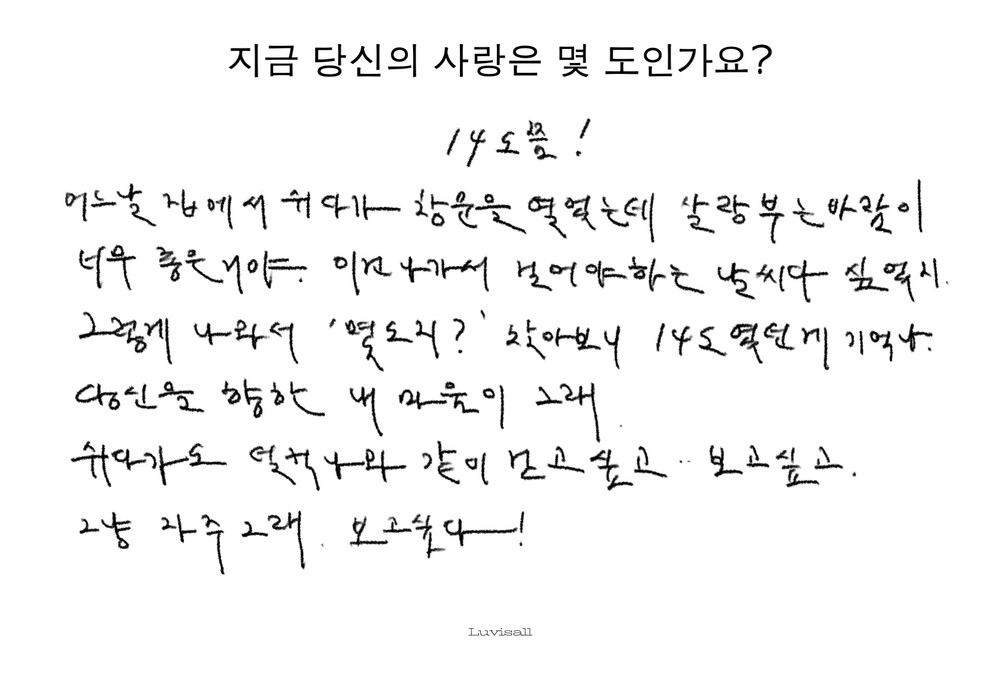 지금 당신의 사랑은 몇 도인가요?
14도쯤!
어느날 집에서 쉬다가 창문을 열었는데 살랑부는바람이
너무 좋은거야. 이건 나가서 걸어야하는 날씨다 싶었지.
그렇게 나와서 '몇도지?' 찾아보니 14도였던게 기억나.
당신을 향한 내 마음이 그래.
쉬다가도 덜컥나와 같이 걷고싶고.. 보고싶고.
그냥 자주그래. 보고싶다!
Luvisall